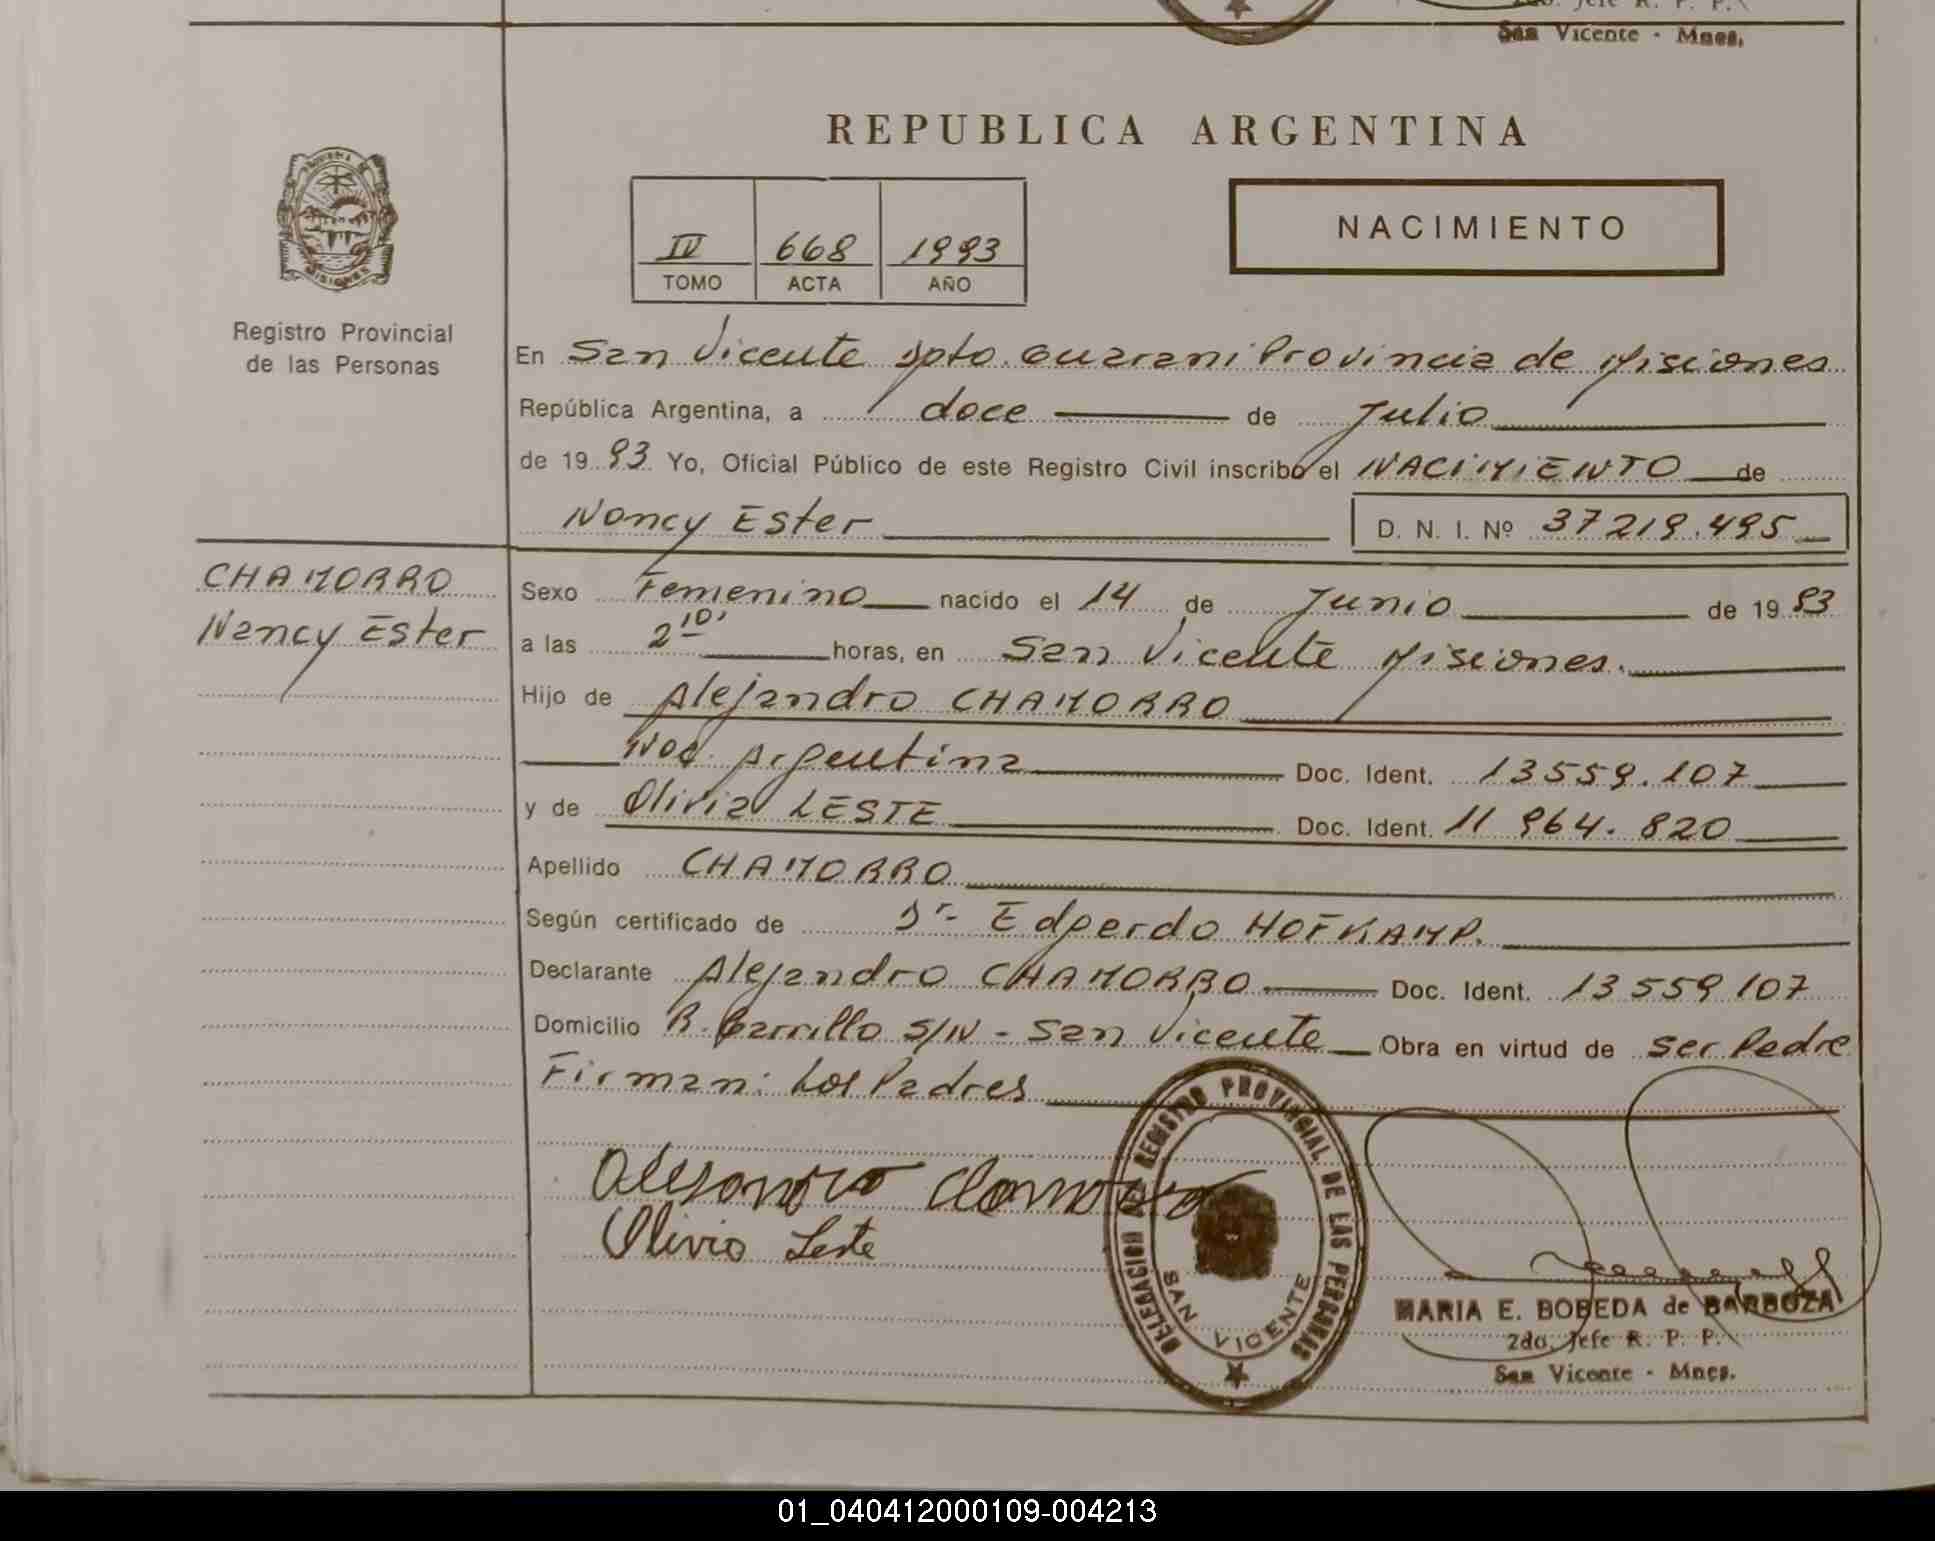 2do. Jefe R. P. P.
San Vicente - Mnes.
REPUBLICA ARGENTINA
MISIONES
Registro Provincial
de las Personas
IV 668 1993
TOMO ACTA AÑO
NACIMIENTO
En San Vicente Dpto. Guarani Provincia de Misiones
República Argentina, a doce de Julio
de 1993 Yo, Oficial Público de este Registro Civil inscribo el NACIMIENTO de
Nancy Ester D. N. I. Nº 37219.495
CHAMORRO
Nancy Ester
Sexo Femenino nacido el 14 de Junio de 1993
a las 2 10' horas, en San Vicente Misiones.
Hijo de Alejandro CHAMORRO
Nac. Argentina Doc. Ident. 13559.107
y de Olivia LESTE Doc. Ident. 11 964. 820
Apellido CHAMORRO
Según certificado de Dr. Edgardo HOFKAMP.
Declarante Alejandro CHAMORRO Doc. Ident. 13 559 107
Domicilio R. Carrillo S/N - San Vicente Obra en virtud de ser Padre
Firman: Los Padres
Olivia Leste
DELEGACION DEL REGISTRO PROVINCIAL DE LAS PERSONAS
SAN VICENTE
MARIA E. BOBEDA de BARBOZA
2do. Jefe R. P. P.
San Vicente - Mnes.
01_040412000109-004213